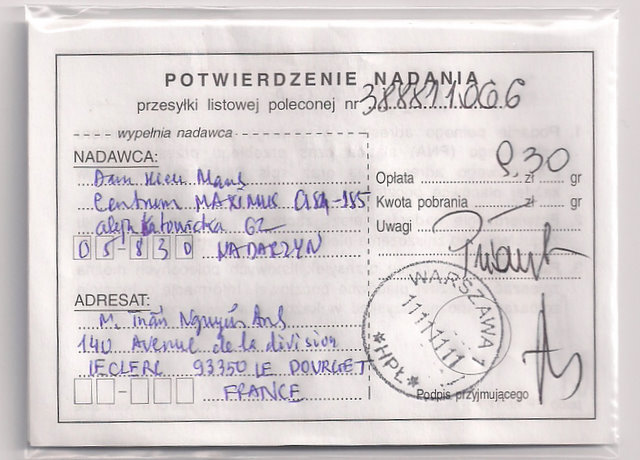 POTWIERDZENIE NADANIA
przesyłki listowej poleconej nr 388811.006
wypełnia nadawca
NADAWCA:
Centrum MAXIMUS
aleja Katowicka 62
05-830 NADARZYN
ADRESAT:
140 Avenue de la division
LECLERC 93350 LE BOURGET
FRANCE
Opłata zł gr
Kwota pobrania zł gr
Uwagi
WARSZAWA 1
*HPŁ*
Podpis przyjmującego